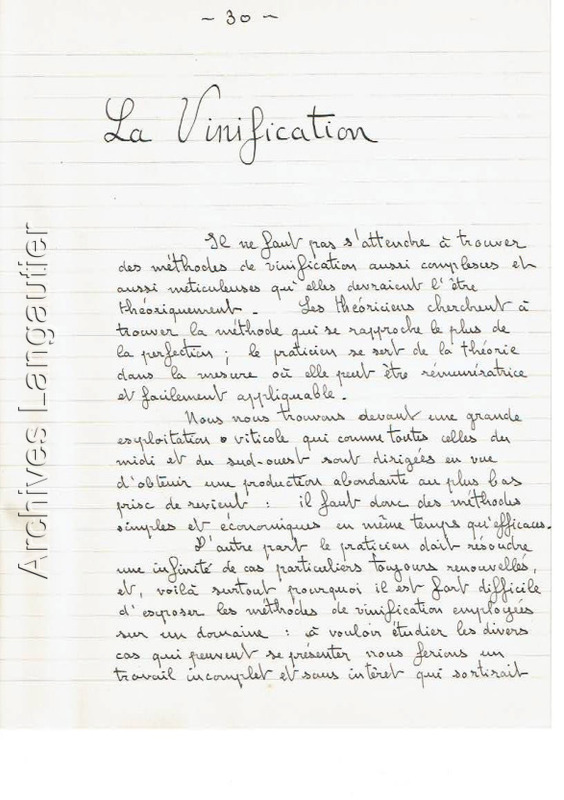 ~ 30 ~
La Vinification
Il ne faut pas s'attendre à trouver
des méthodes de vinification aussi complexes et
aussi méticuleuses qu'elles devraient l'être
théoriquement. Les théoriciens cherchent à
trouver la méthode qui se rapproche le plus de
la perfection ; le praticien se sert de la théorie
dans la mesure où elle peut être rémunératrice
et facilement appliquable.
Nous nous trouvons devant une grande
exploitation viticole qui comme toutes celles du
midi et du sud-ouest sont dirigées en vue
d'obtenir une production abondante au plus bas
prix de revient : il faut donc des méthodes
simples et économiques en même temps qu'efficaces.
D'autre part le praticien doit résoudre
une infinité de cas particuliers toujours renouvellés,
et, voilà surtout pourquoi il est fort difficile
d'exposer les méthodes de vinification employées
sur un domaine : à vouloir étudier les divers
cas qui peuvent se présenter nous ferions un
travail incomplet et sans intéret qui sortirait
Archives Langautier